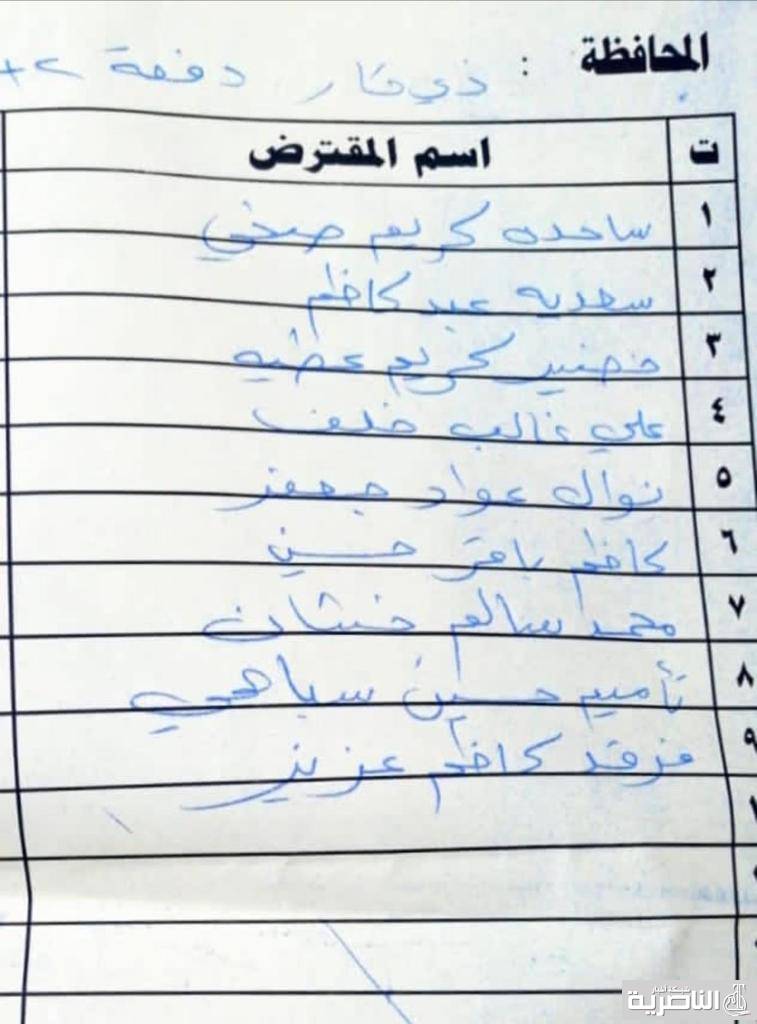 المحافظة : ذي قار دفعة ٢+
ت اسم المقترض
١ ساجده كريم صخي
٢ سعديه عبد كاظم
٣ خضير كريم عطيه
٤ علي غالب خلف
٥ نوال عواد جعفر
٦ كاظم باقر حسن
٧ محمد سالم خشان
٨ تأميم حسين سباهي
٩ فرقد كاظم عزيز
شبكة أخبار
الناصرية